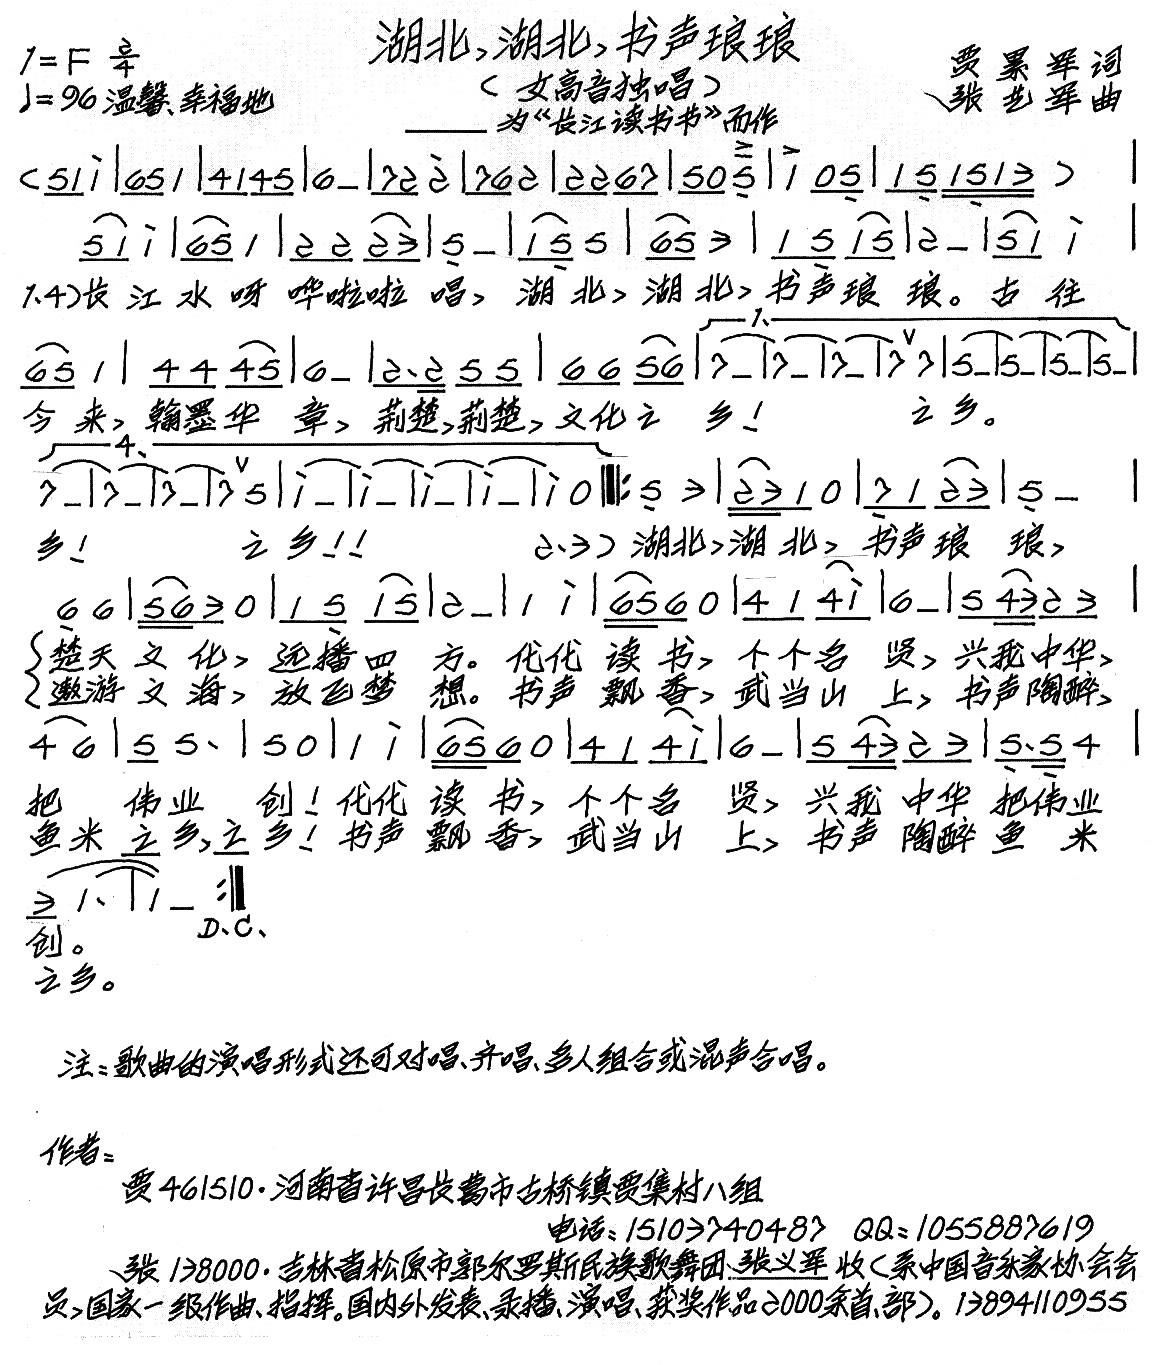 湖北,湖北,书声琅琅
1=F 2/4
(女高音独唱)
贾累军 词
♩=96 温馨、幸福地
张艺军 曲
——— 为“长江读书节”而作
(51 i|651|4145|6–|72 2|762|2267|505|i 05|15 1513)|
51 i|651|22 23|5–|15 5|65 3|15 15|2–|51 i|
1.4)长江水呀哗啦啦唱,湖北,湖北,书声琅琅。古往
1.
65 1|44 45|6–|2.2 55|66 56|7–|7–|7–|7 7|5–|5–|5–|5–|
今来,翰墨华章,荆楚,荆楚,文化之乡! 之乡。
4.
7–|7–|7–|7 5|i–|i–|i–|i–|i 0‖:5 3|23 1 0|71 23|5–|
乡! 之乡!! 2.3)湖北,湖北,书声琅琅,
66|56 30|15 15|2–|1 i|65 60|41 4i|6–|5 43 23|
楚天文化,远播四方。代代读书,个个名贤,兴我中华,
遨游文海,放飞梦想。书声飘香,武当山上,书声陶醉,
46|5 5.|50|1 i|65 60|41 4i|6–|5 43 23|5.5 4|
把伟业创!代代读书,个个名贤,兴我中华把伟业
鱼米之乡,之乡!书声飘香,武当山上,书声陶醉鱼米
3 1.|1–:‖
D.C.
创。
之乡。
注:歌曲的演唱形式还可对唱、齐唱、多人组合或混声合唱。
作者:
贾461510·河南省许昌长葛市古桥镇贾集村八组
电话:15103740487 QQ:1055887619
张138000·吉林省松原市郭尔罗斯民族歌舞团、张义军收(系中国音乐家协会会
员,国家一级作曲、指挥。国内外发表、录播、演唱、获奖作品2000余首、部)。13894110955